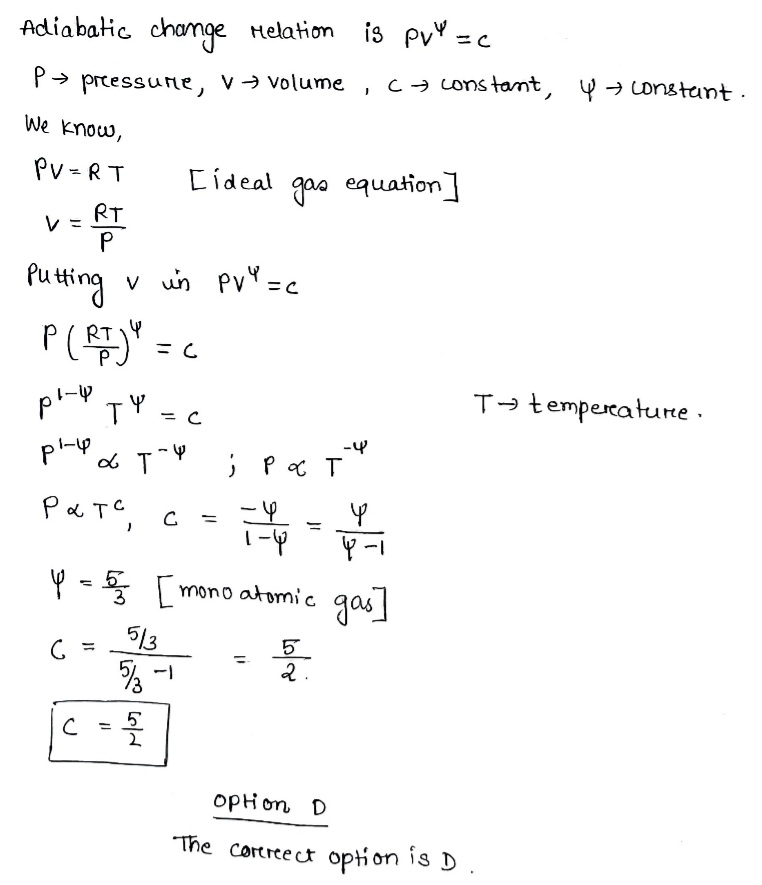 Adiabatic change relation is PV^ψ = c
P → pressure, V → volume, c → constant, ψ → constant.
We know,
PV = RT [ideal gas equation]
V = RT/P
Putting v in PV^ψ = c
P(RT/P)^ψ = c
P^1-ψ T^ψ = c T → temperature.
P^1-ψ ∝ T^-ψ ; P ∝ T^-ψ
P ∝ T^c, c = -ψ/1-ψ = ψ/ψ-1
ψ = 5/3 [mono atomic gas]
C = 5/3 / 5/3 -1 = 5/2.
C = 5/2
option D
The correct option is D.